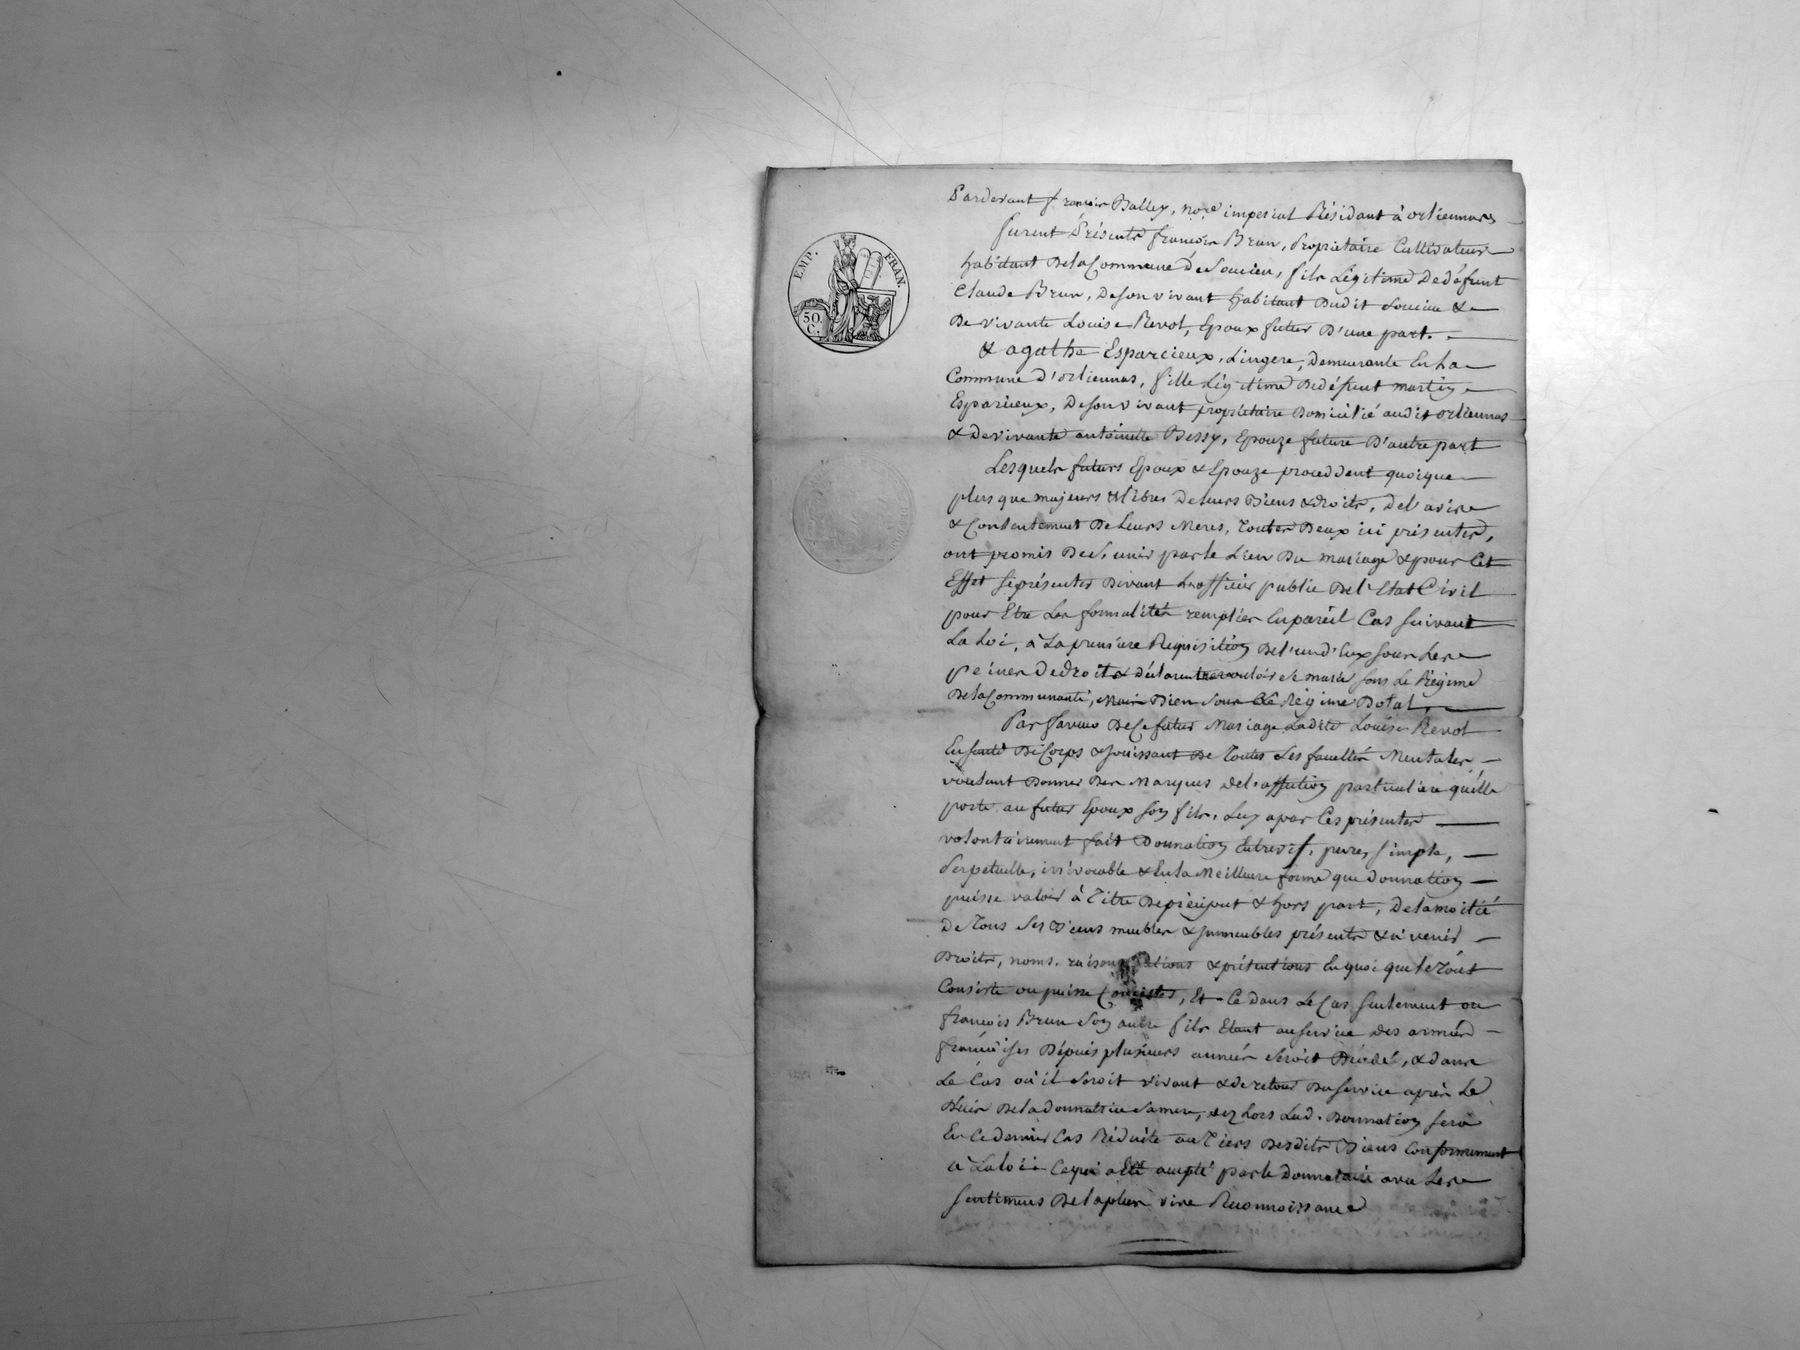 EMP. FRAN.
50.
C.
Pardevant françois Balley, no.re imperial Résidant à orliennas
furent Présents françois Brun, Propriétaire Cultivateur
habitant De la Commune de Soucieu, fils Légitime De défunt
Claude Brun, De son vivant habitant Dudit Soucieu &
De vivante Louise Revol, Epoux futur D'une part.
& agathe Esparcieux, Lingere, Demeurante En La
Commune d'orliennas, fille Légitime De défunt martin
Esparcieux, De son vivant propriétaire Domicilié audit orliennas
& De vivante antoinette Bessy, Epouze future D'autre part
Lesquels futurs Epoux & Epouze proceddent quoique
plus que majeurs & libres De leurs Biens & droits, de l'avis
& Consentement De Leurs Meres, Toutes Deux ici présentes,
ont promis De S'unir par le Lien Du mariage & pour Cet
Effet se présenter Devant L'officier public De l'Etat Civil
pour Etre Les formalités remplies En pareil Cas suivant
La Loi, à La premiere Requisition De l'un d'Eux sous Les
peines de droit & déclarent vouloir se marier sous Le Régime
De la Communauté, Mais Bien sous Le Régime Dotal,
Par faveur De Ce futur Mariage Ladite Louise Revol
En santé De Corps & Jouissant De Toutes Ses facultés Mentales,
voulant Donner Des Marques de l'affection particuliere qu'elle
porte au futur Epoux son fils, Luy a par Ces présentes
volontairement fait Donnation Entrevif, pure, simple,
Perpetuelle, irrévocable & En la Meilleure forme que donnation
puisse valoir à Titre De préciput & hors part, De la moitié
De Tous Ses Biens meubles & Immeubles présents & à venir
Droits, noms, raisons actions & prétentions En quoi que le Tout
Consiste ou puisse Consister, Et Ce dans Le Cas seulement ou
françois Brun son autre fils Etant au service des armées
françoises Depuis plusieurs années seroit Décédé, & dans
Le Cas où il seroit vivant & de retour Du service après Le
Décès De la donnatrice sa mere, dez Lors Lad. Donnation sera
En Ce dernier Cas Réduite au Tiers Desdits Biens Conformement
à La loi Ce qui a Eté accepté par le Donnataire avec Les
sentimens De la plus vive Reconnoissance